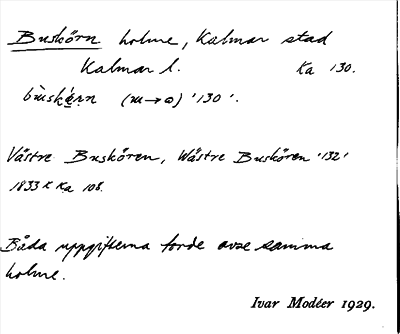 Buskörn holme, Kalmar stad
Kalmar l. Ka 130.
bùskǝ̀rn (ɯ→o) '130'.
Västre Buskören, Wästre Buskören '132'
1833 K Ka 108.
Båda uppgifterna torde avse samma
holme.
Ivar Modéer 1929.